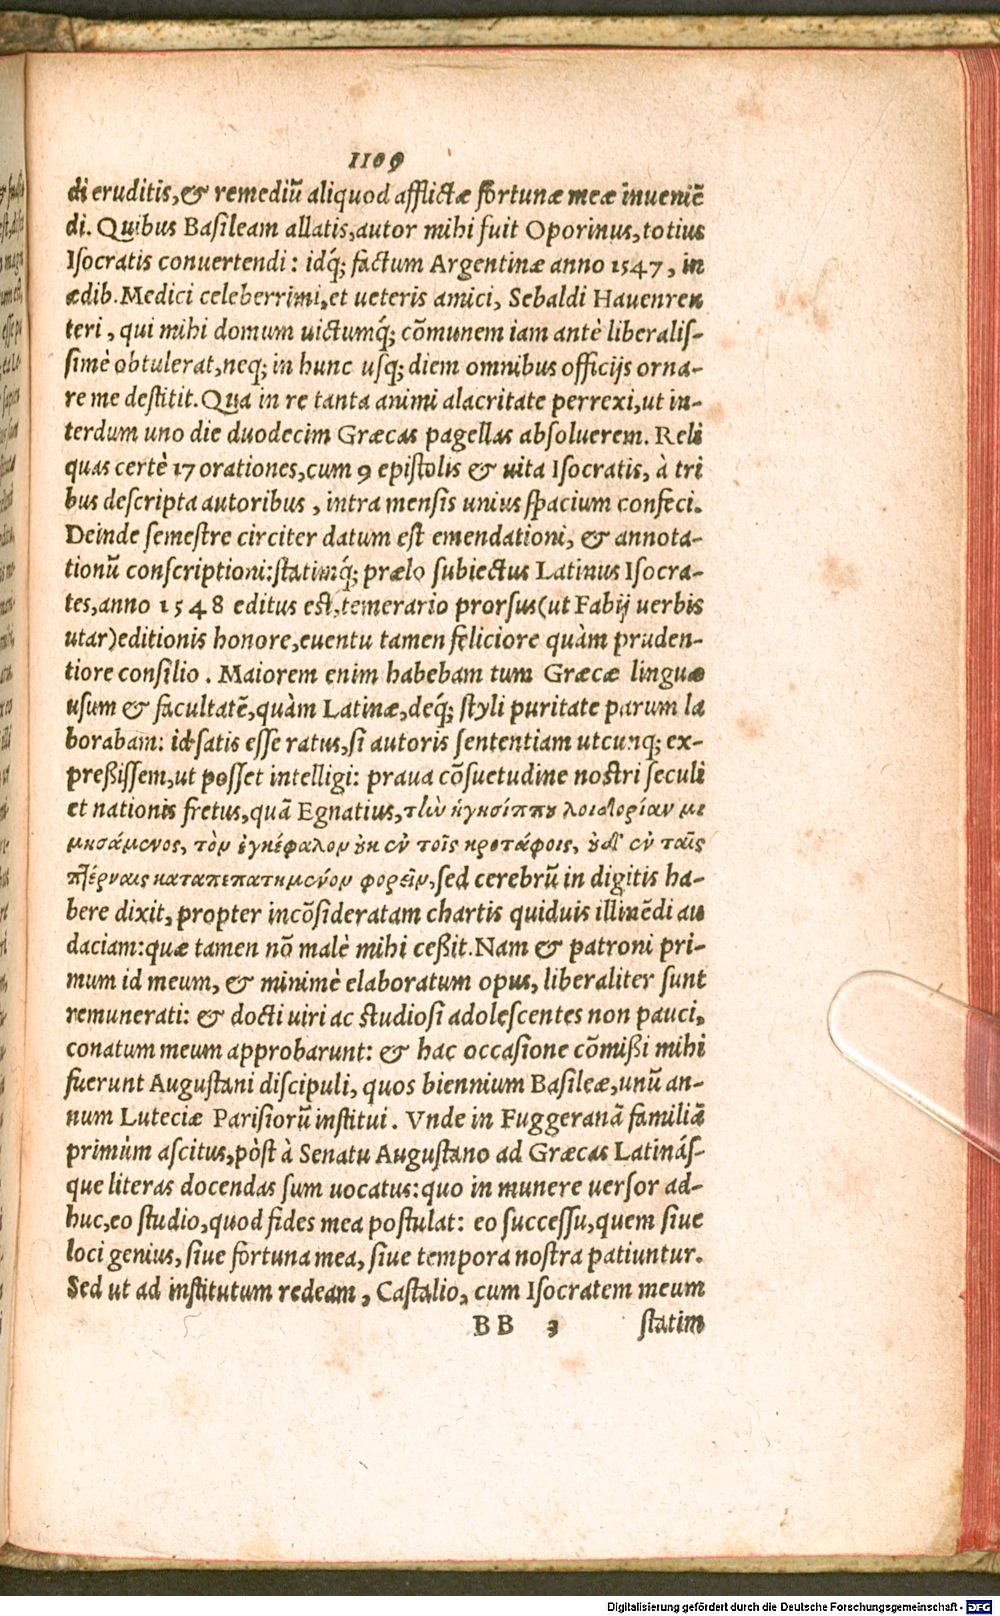 1109
di eruditis,& remediũ aliquod afflictæ fortunæ meæ inueniẽ
di. Quibus Basileam allatis,autor mihi fuit Oporinus,totius
Isocratis conuertendi: idq́; factum Argentinæ anno 1547, in
ædib.Medici celeberrimi,et ueteris amici, Sebaldi Hauenreu
teri, qui mihi domum uictumq́; cõmunem iam antè liberalis-
simè obtulerat,neq; in hunc usq; diem omnibus officijs orna-
re me destitit.Qua in re tanta animi alacritate perrexi,ut in-
terdum uno die duodecim Græcas pagellas absoluerem. Reli
quas certè 17 orationes,cum 9 epistolis & uita Isocratis, à tri
bus descripta autoribus, intra mensis unius spacium confeci.
Deinde semestre circiter datum est emendationi, & annota-
tionũ conscriptioni:statimq́; prælo subiectus Latinus Isocra-
tes,anno 1548 editus est,temerario prorsus(ut Fabij uerbis
utar)editionis honore,euentu tamen feliciore quàm pruden-
tiore consilio. Maiorem enim habebam tum Græcæ linguæ
usum & facultatẽ,quàm Latinæ,deq́; styli puritate parum la
borabam: id satis esse ratus,si autoris sententiam utcunq; ex-
preßissem,ut posset intelligi: praua cõsuetudine nostri seculi
et nationis fretus,quã Egnatius,τὼ ἡγησίππου λοιδορίαν με
μησάμενος, τὸν ἐγκέφαλον οὐκ ἐν τοῖς κροτάφοις, οὐδ' ἐν ταῖς
πτέρναις καταπεπατημένον φορεῖν,sed cerebrũ in digitis ha-
bere dixit, propter incõsideratam chartis quiduis illinẽdi au
daciam:quæ tamen nõ malè mihi ceßit.Nam & patroni pri-
mum id meum, & minimè elaboratum opus, liberaliter sunt
remunerati: & docti uiri ac studiosi adolescentes non pauci,
conatum meum approbarunt: & hac occasione cõmißi mihi
fuerunt Augustani discipuli, quos biennium Basileæ,unũ an-
num Luteciæ Parisiorũ institui. Vnde in Fuggeranã familiã
primùm ascitus,pòst à Senatu Augustano ad Græcas Latinás-
que literas docendas sum uocatus:quo in munere uersor ad-
huc,eo studio,quod fides mea postulat: eo successu,quem siue
loci genius, siue fortuna mea, siue tempora nostra patiuntur.
Sed ut ad institutum redeam, Castalio, cum Isocratem meum
BB 3 statim
Digitalisierung gefördert durch die Deutsche Forschungsgemeinschaft - DFG